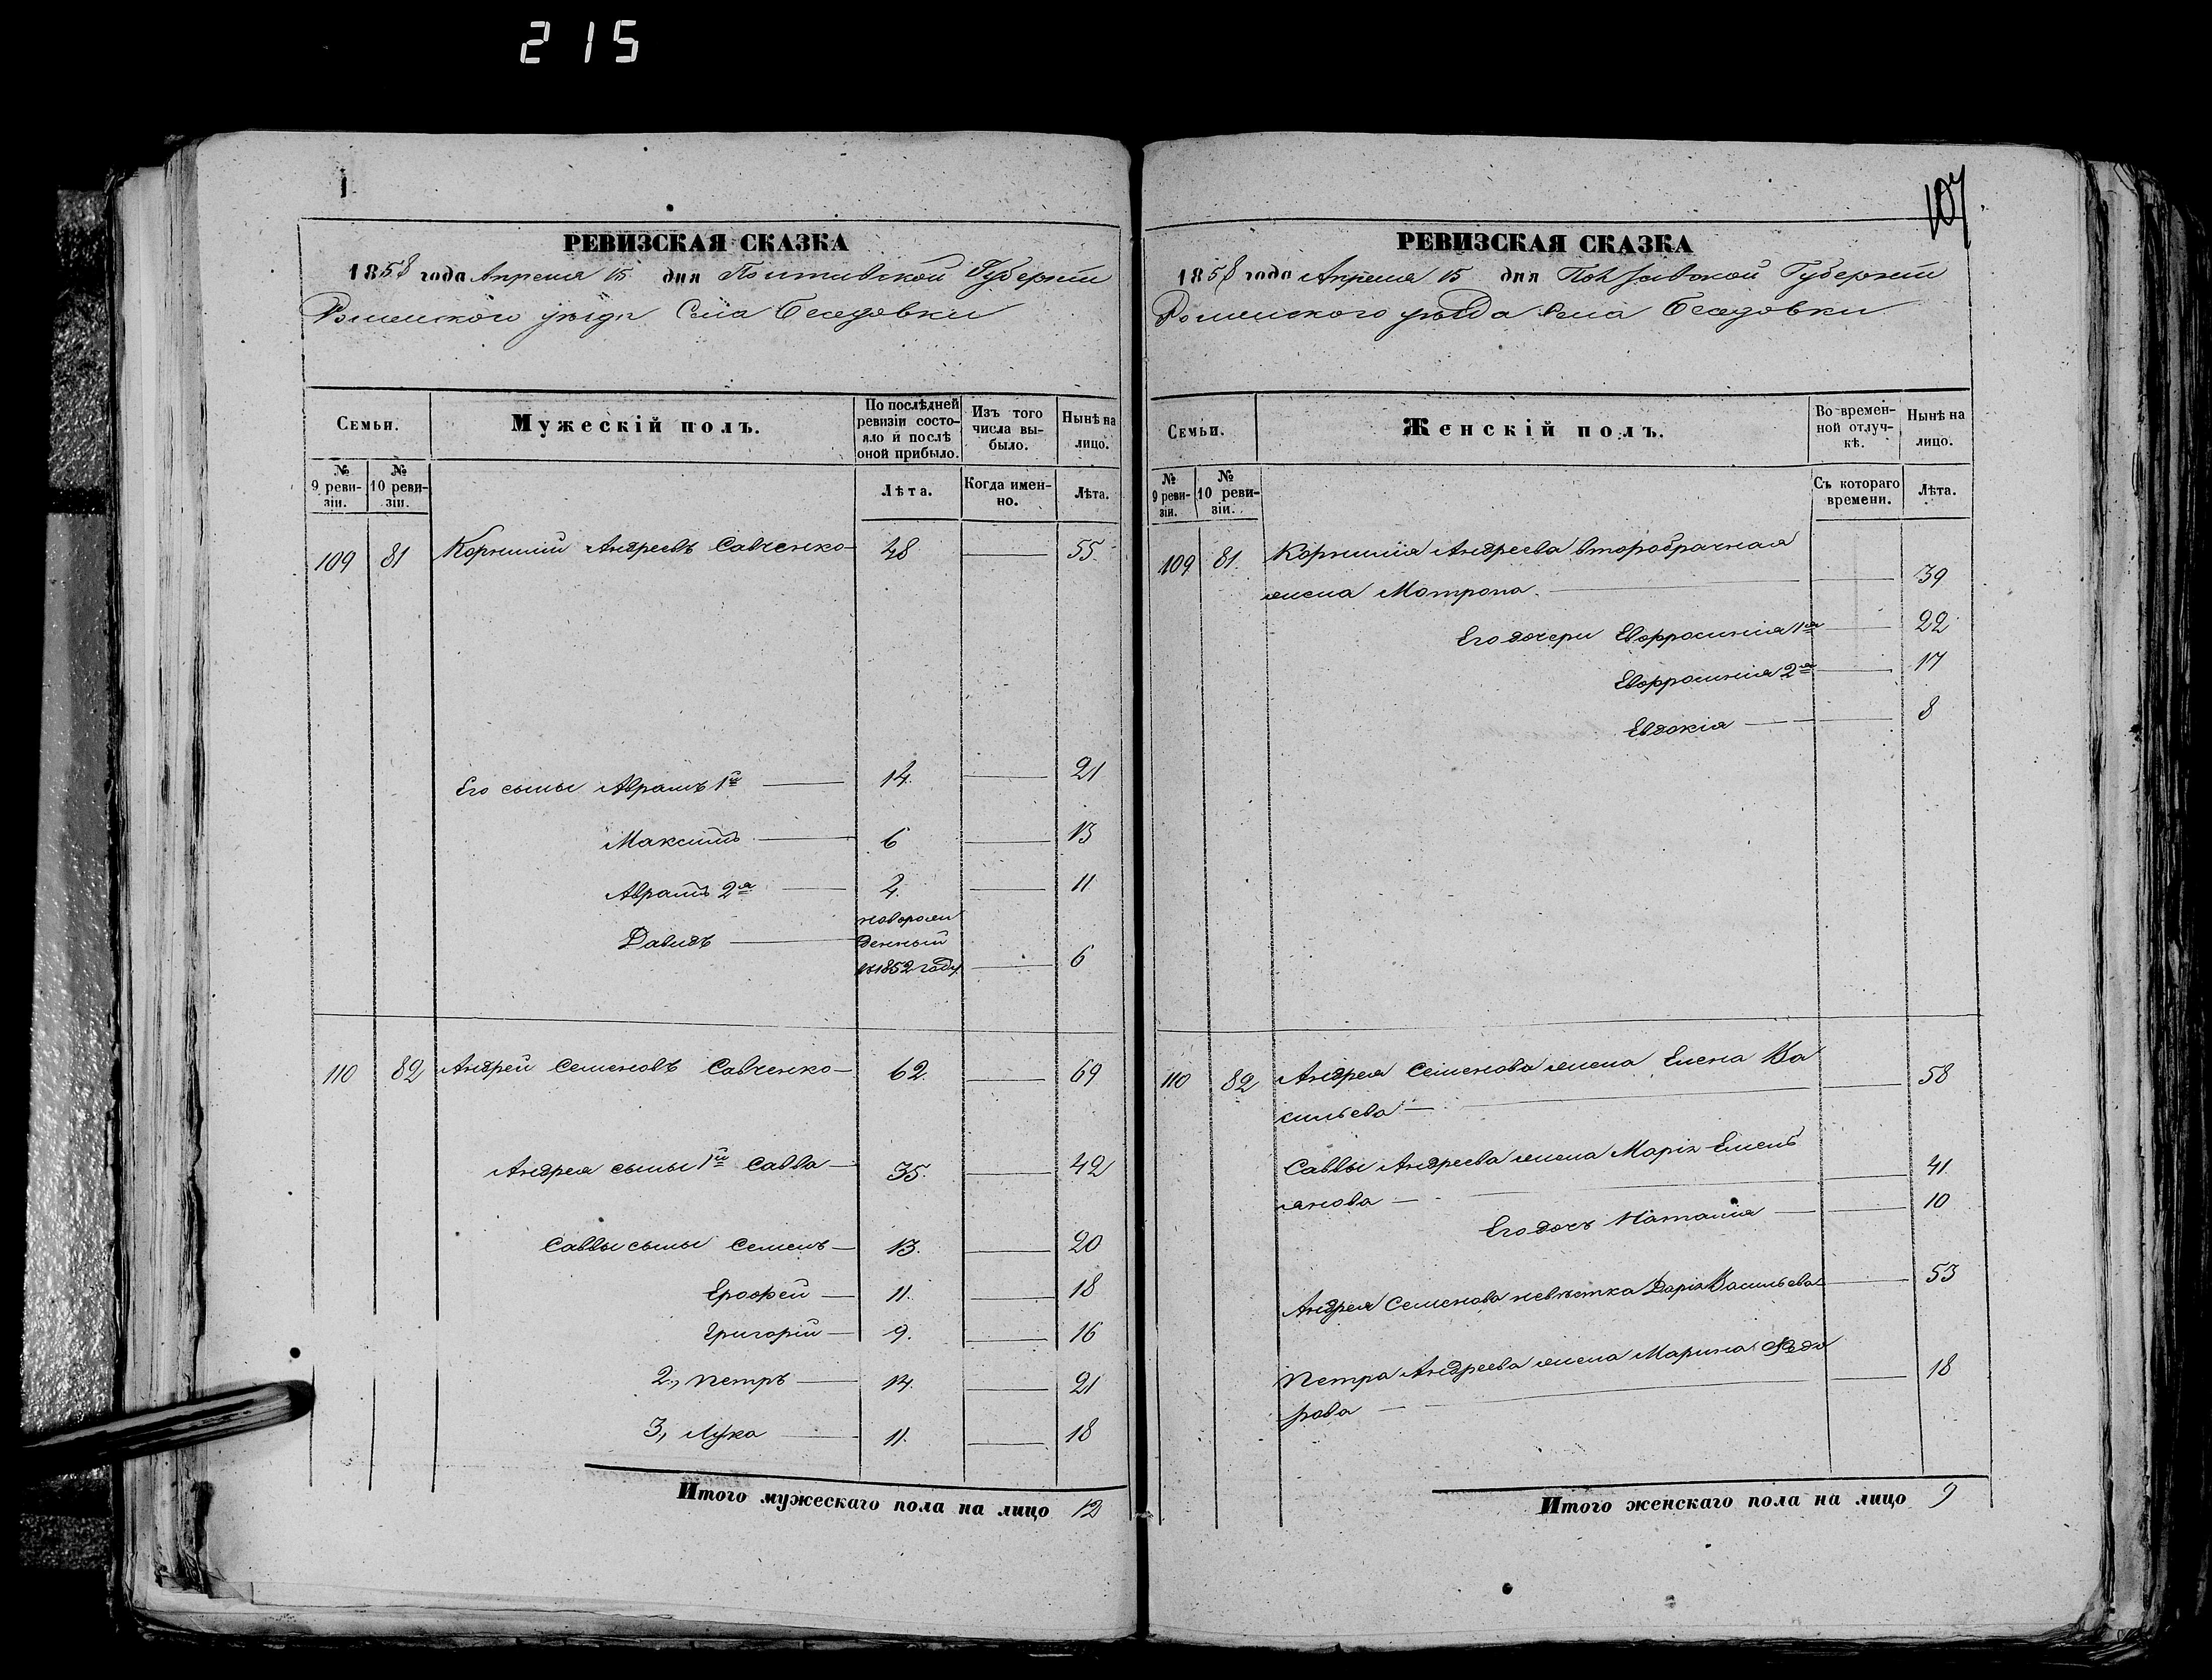 215
107
РЕВИЗСКАЯ СКАЗКА
1858 года Апреля 15 дня Полтавской Губерніи
Роменского уѣзда Села Беседовки
Семьи.
Мужескій полъ.
По послѣдней ревизіи состояло и послѣ оной прибыло.
Изъ того числа выбыло.
Нынѣ на лицо.
№ 9 ревизіи.
№ 10 ревизіи.
Лѣта.
Когда именно.
Лѣта.
109 81 Корнилій Андреевъ Савченко 48 55
Его сыны Аврамъ 1й 14. 21
Максимъ 6 13
Аврамъ 2й 4 11
новорож
Давидъ денный
въ 1852 году 6
110 82 Андрей Семеновъ Савченко 62. 69
Андрея сыны 1й Савва 35. 42
Саввы сыны Семенъ 13. 20
Ерофей 11. 18
Григорій 9. 16
2, Петръ 14. 21
3, Лука 11. 18
Итого мужескаго пола на лицо 12
РЕВИЗСКАЯ СКАЗКА
1858 года Апреля 15 дня Полтавской Губерніи
Роменского уѣзда Села Беседовки
Семьи.
Женскій полъ.
Во временной отлучкѣ.
Нынѣ на лицо.
№ 9 ревизіи.
№ 10 ревизіи.
Съ котораго времени.
Лѣта.
109 81. Корнилія Андреева второбрачная
жена Мотрона. 39
Его дочери Евфросинія 1я 22
Евфросинія 2я 17
Евдокія 8
110 82 Андрея Семенова жена Елена Ва
сильева 58
Саввы Андреева жена Марія Емель
янова 41
Его дочь Наталія 10
Андрея Семенова невѣстка Дарія Васильева 53
Петра Андреева жена Марина Ѳедо
рова 18
Итого женскаго пола на лицо 9